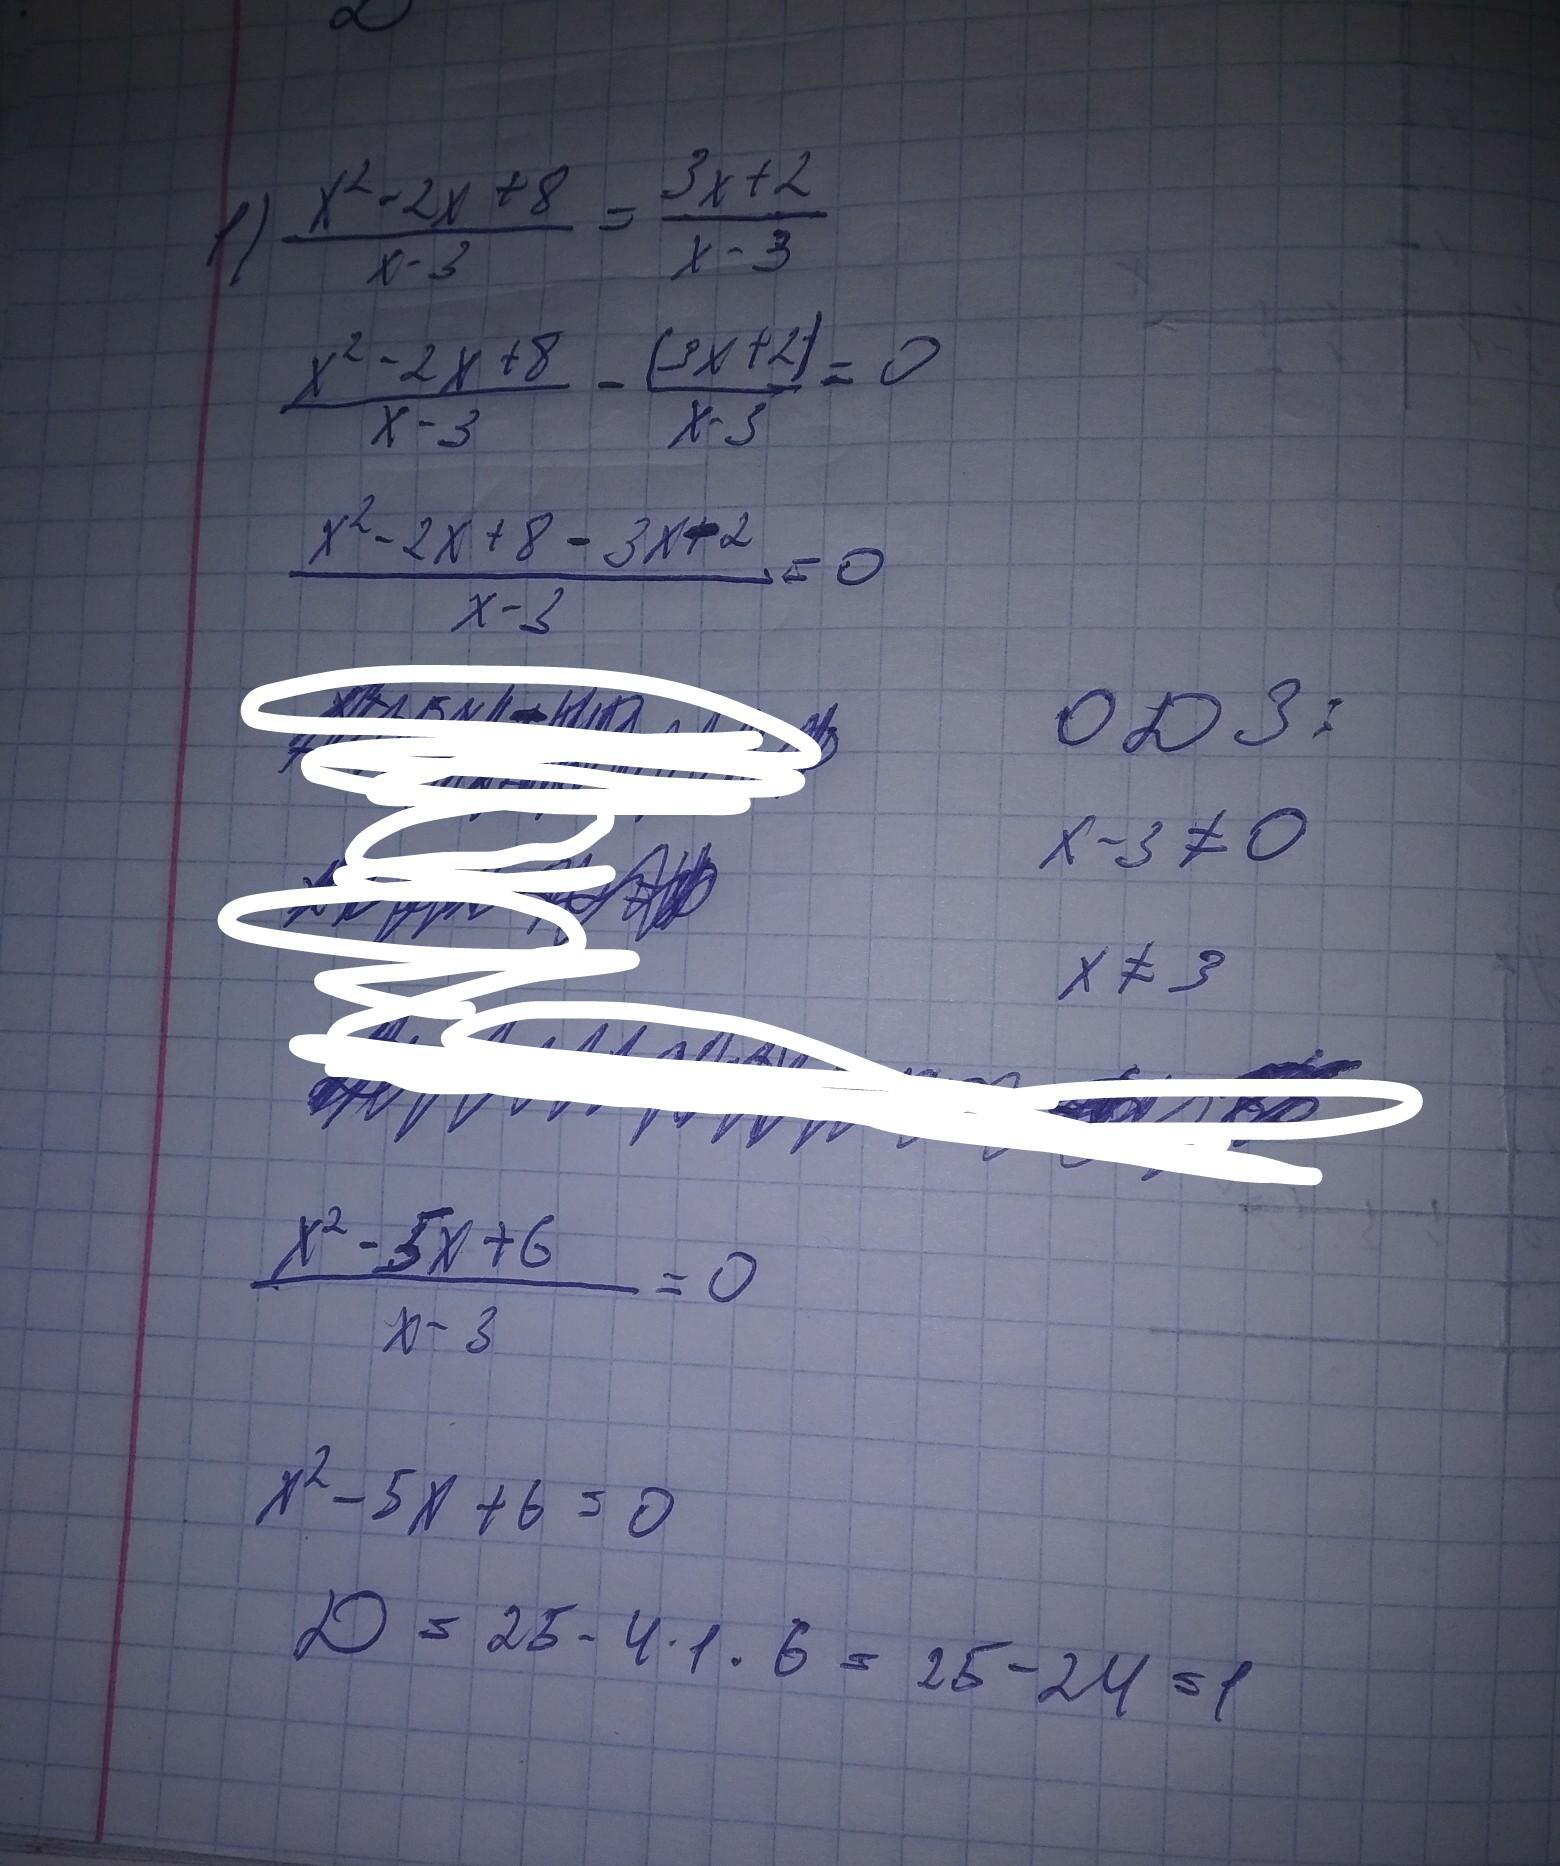 1) (x²-2x+8)/(x-3) = (3x+2)/(x-3)
(x²-2x+8)/(x-3) - (3x+2)/(x-3) = 0
(x²-2x+8-3x-2)/(x-3) = 0
ОДЗ:
x-3≠0
x≠3
(x²-5x+6)/(x-3) = 0
x²-5x+6=0
D = 25-4·1·6 = 25-24 = 1